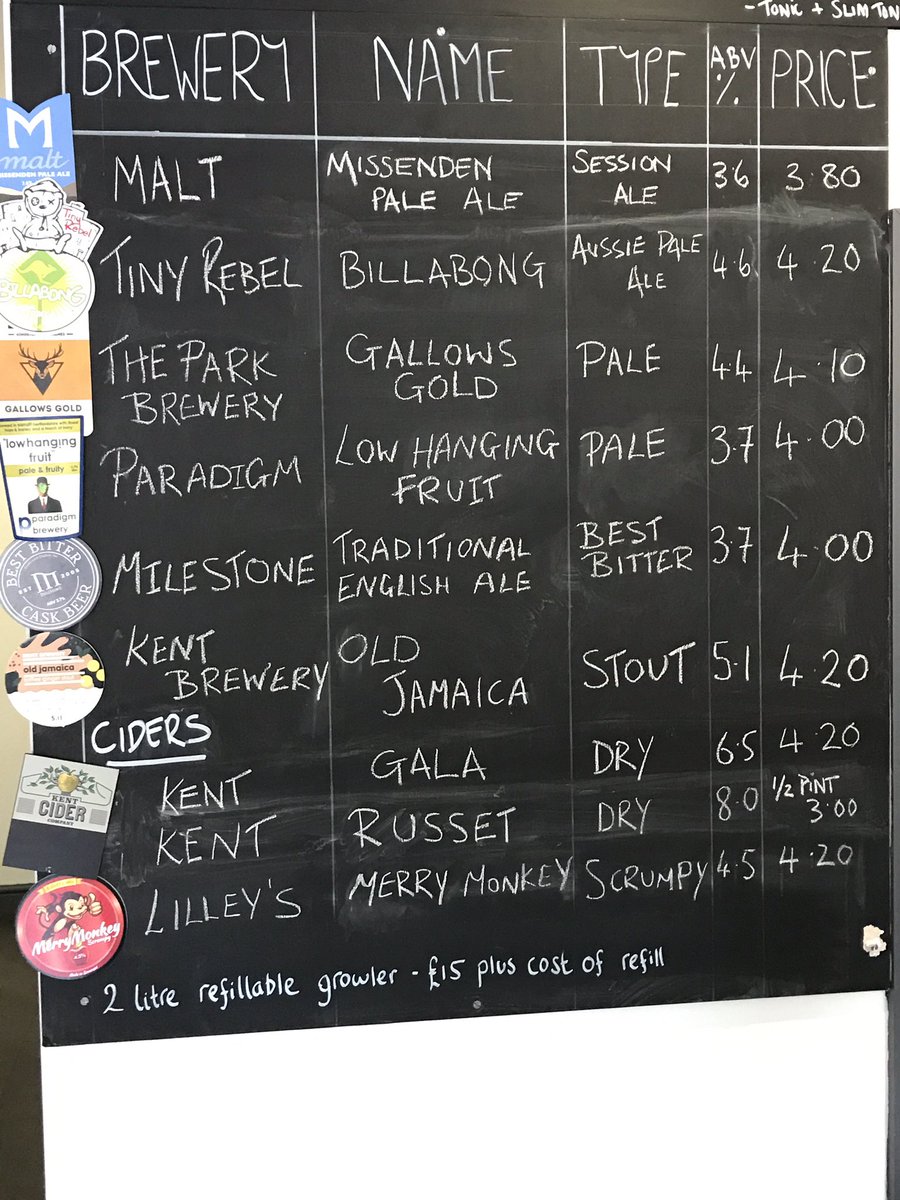 - TONIC + SLIM TON
BREWERY NAME TYPE ABV % PRICE
MALT MISSENDEN PALE ALE SESSION ALE 3.6 3.80
TINY REBEL BILLABONG AUSSIE PALE ALE 4.6 4.20
THE PARK BREWERY GALLOWS GOLD PALE 4.4 4.10
PARADIGM LOW HANGING FRUIT PALE 3.7 4.00
MILESTONE TRADITIONAL ENGLISH ALE BEST BITTER 3.7 4.00
KENT BREWERY OLD JAMAICA STOUT 5.1 4.20
CIDERS
KENT GALA DRY 6.5 4.20
KENT RUSSET DRY 8.0 1/2 PINT 3.00
LILLEY'S MERRY MONKEY SCRUMPY 4.5 4.20
2 litre refillable growler - £15 plus cost of refill
M
malt
MISSENDEN PALE ALE
Tiny
Rebel
BILLABONG
GALLOWS GOLD
lowhanging
fruit
pale & fruity
paradigm
brewery
BEST BITTER
EST M 2005
CASK BEER
old jamaica
KENT
CIDER
COMPANY
Merry Monkey
Scrumpy